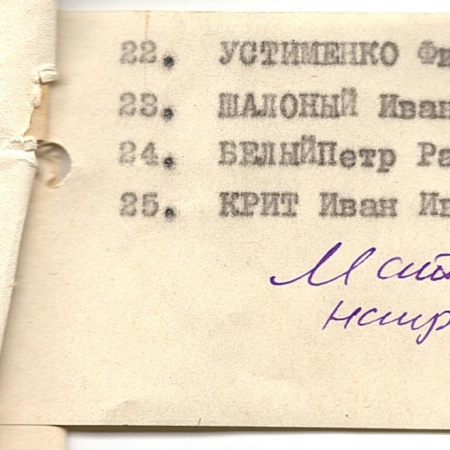 22. УСТИМЕНКО Фи
23. ШАЛОНЫЙ Иван
24. БЕЛЫЙПетр Ра
25. КРИТ Иван Ив
Мат
напр